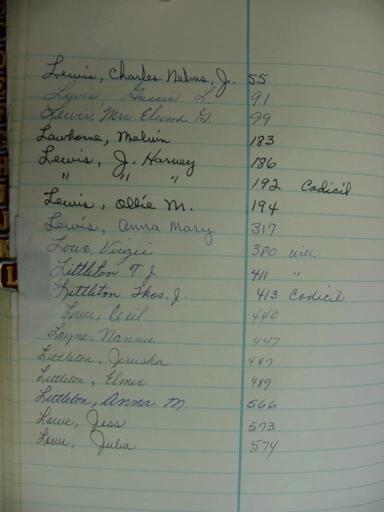 Lewis, Charles Nelms, Jr. 55
Lewis, Gussie L. 91
Lewis, Mrs. Elwood G. 99
Lawhorne, Melvin 183
Lewis, J. Harvey 186
" " " 192 Codicil
Lewis, Ollie M. 194
Lewis, Anna Mary 317
Lowe, Virgie 380 will
Littleton T. J. 411 "
Littleton Thos. J. 413 Codicil
Lowe, Cecil 440
Layne, Nannie 447
Littleton, Jerusha 487
Littleton, Elmer 489
Littleton, Anna M. 566
Lowe, Jess 573
Lowe, Julia 574
L